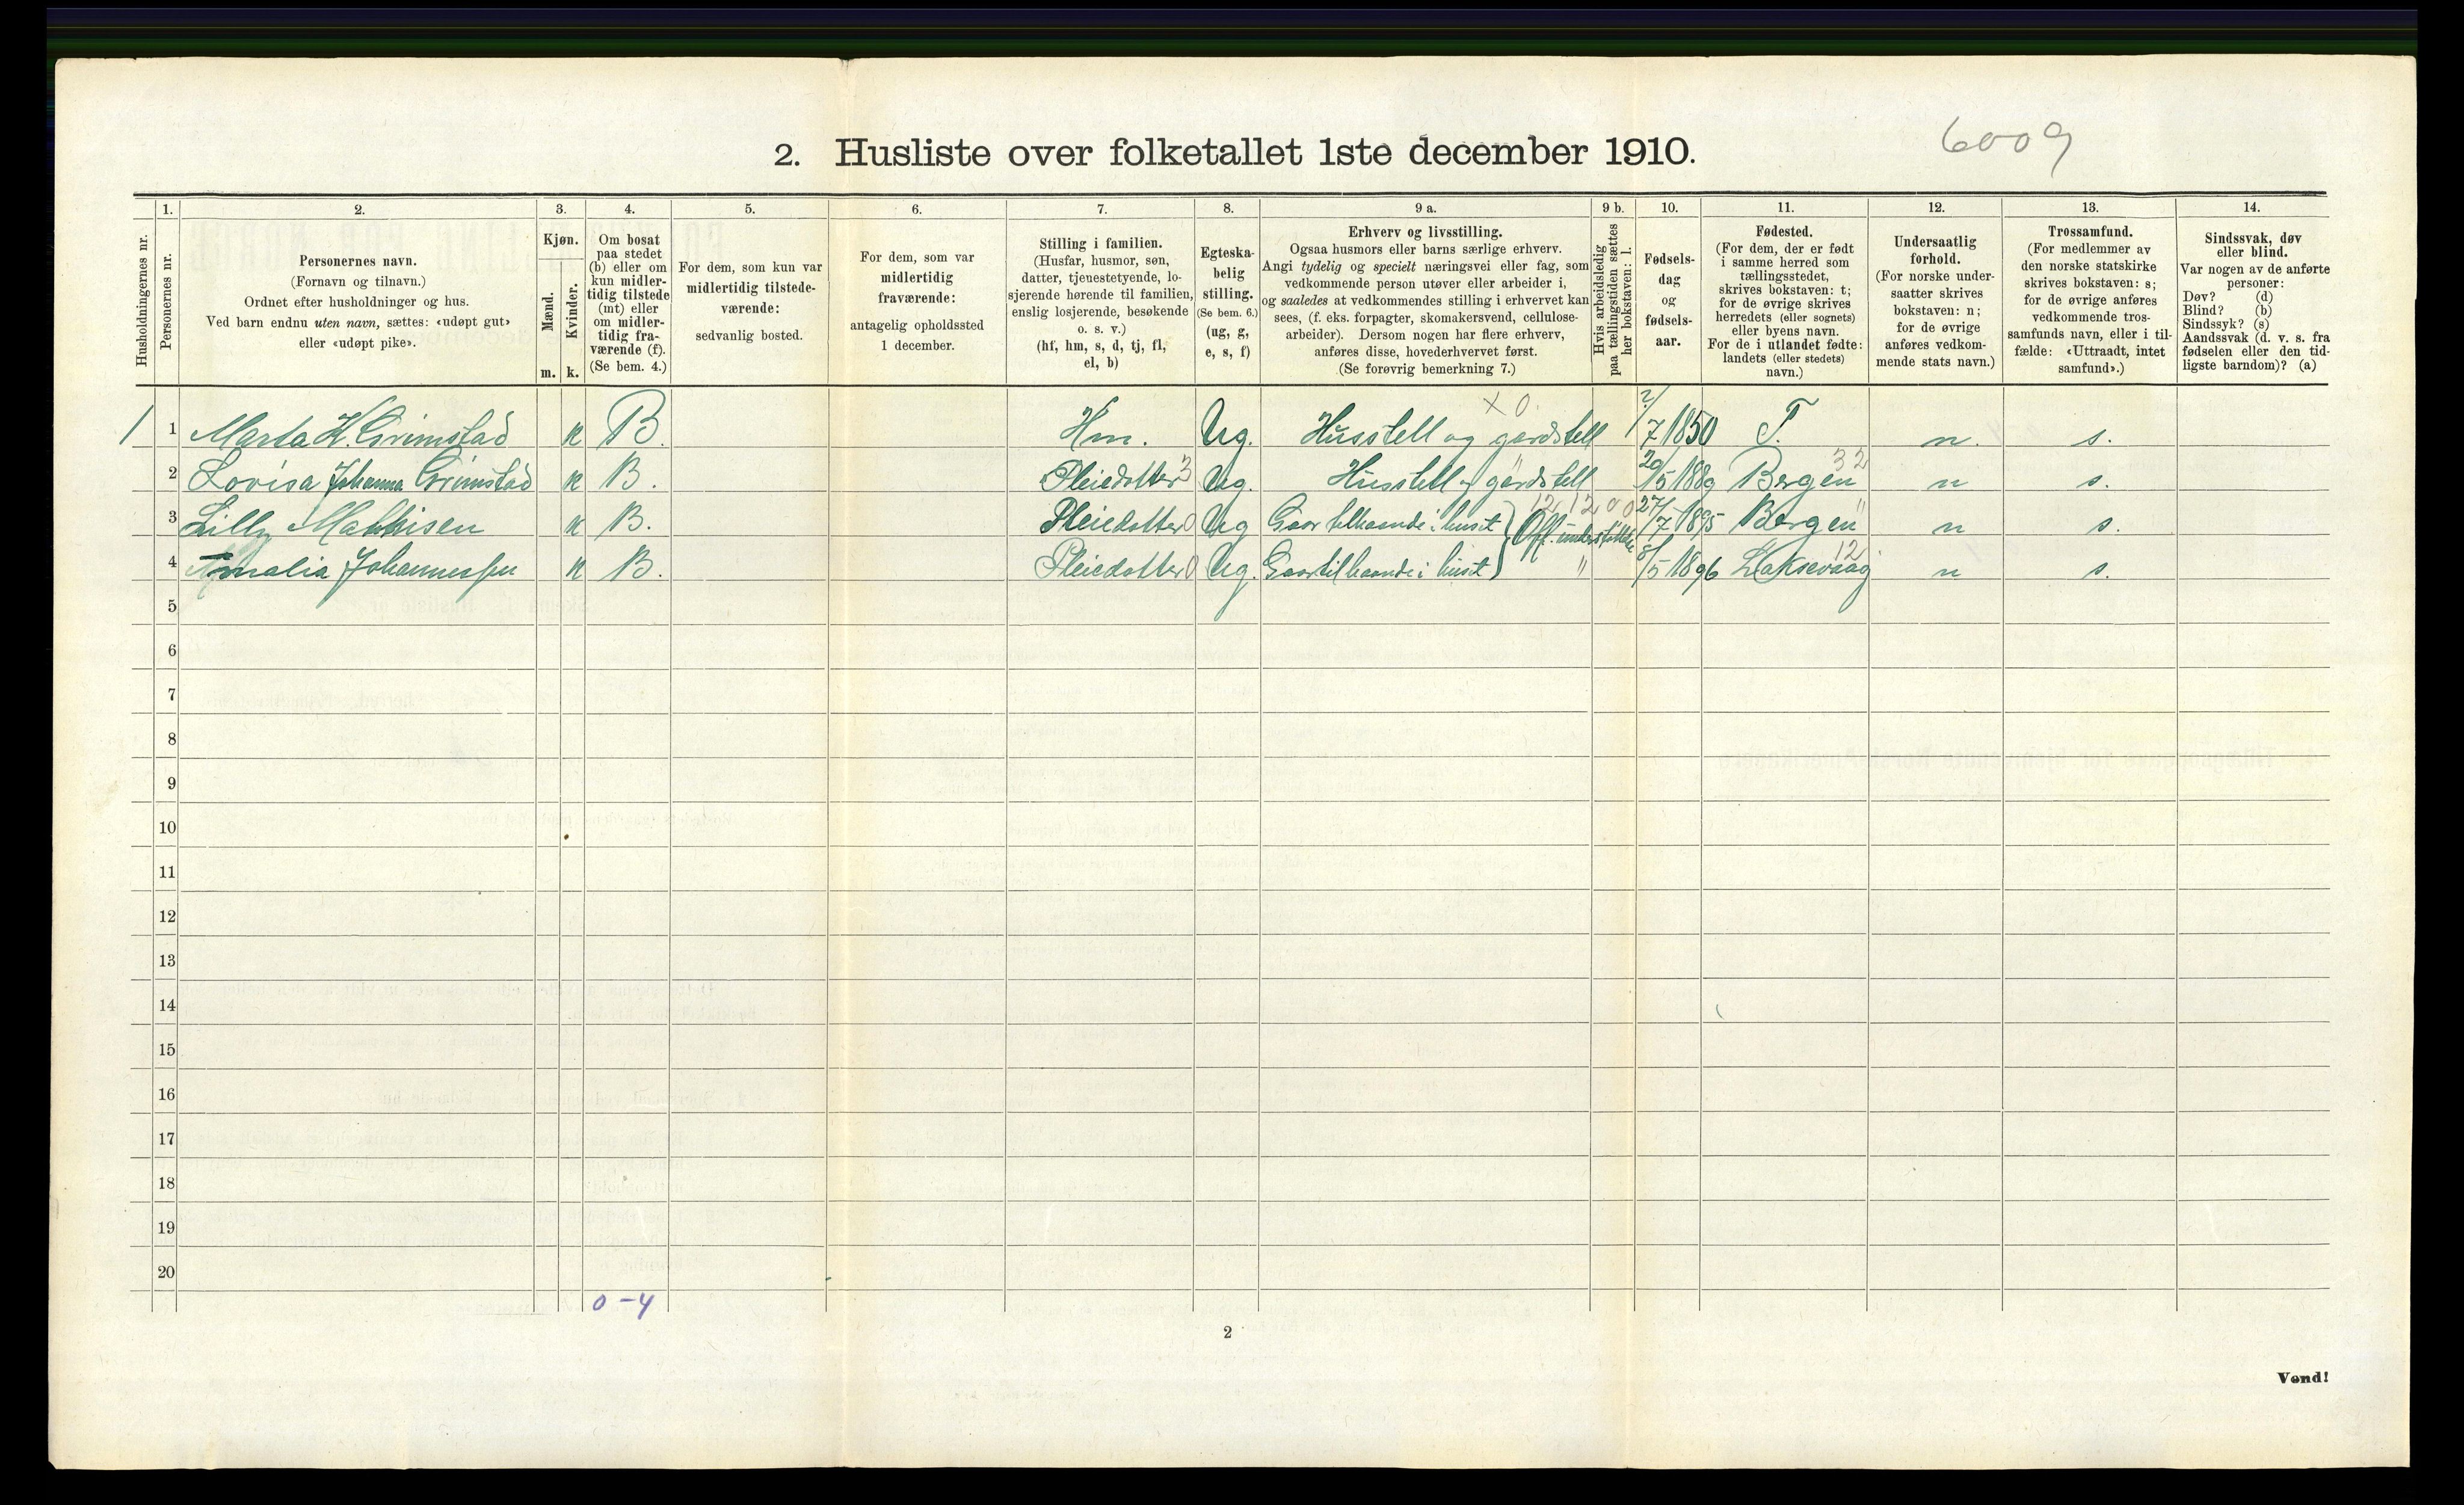 6009
2. Husliste over folketallet 1ste december 1910.
Husholdningernes nr.
1.
Personernes nr.
2.
Personernes navn.
(Fornavn og tilnavn.)
Ordnet efter husholdninger og hus.
Ved barn endnu uten navn, sættes: «udøpt gut»
eller «udøpt pike».
3.
Kjøn.
Mænd.
Kvinder.
m. k.
4.
Om bosat
paa stedet
(b) eller om
kun midler-
tidig tilstede
(mt) eller
om midler-
tidig fra-
værende (f).
(Se bem. 4.)
5.
For dem, som kun var
midlertidig tilstede-
værende:
sedvanlig bosted.
6.
For dem, som var
midlertidig
fraværende:
antagelig opholdssted
1 december.
7.
Stilling i familien.
(Husfar, husmor, søn,
datter, tjenestetyende, lo-
sjerende hørende til familien,
enslig losjerende, besøkende
o. s. v.)
(hf, hm, s, d, tj, fl,
el, b)
8.
Egteska-
belig
stilling.
(Se bem. 6.)
(ug, g,
e, s, f)
9 a.
Erhverv og livsstilling.
Ogsaa husmors eller barns særlige erhverv.
Angi tydelig og specielt næringsvei eller fag, som
vedkommende person utøver eller arbeider i,
og saaledes at vedkommendes stilling i erhvervet kan
sees, (f. eks. forpagter, skomakersvend, cellulose-
arbeider). Dersom nogen har flere erhverv,
anføres disse, hovederhvervet først.
(Se forøvrig bemerkning 7.)
9 b.
Hvis arbeidsledig
paa tællingstiden sættes
her bokstaven: l.
10.
Fødsels-
dag
og
fødsels-
aar.
11.
Fødested.
(For dem, der er født
i samme herred som
tællingsstedet,
skrives bokstaven: t;
for de øvrige skrives
herredets (eller sognets)
eller byens navn.
For de i utlandet fødte:
landets (eller stedets)
navn.)
12.
Undersaatlig
forhold.
(For norske under-
saatter skrives
bokstaven: n;
for de øvrige
anføres vedkom-
mende stats navn.)
13.
Trossamfund.
(For medlemmer av
den norske statskirke
skrives bokstaven: s;
for de øvrige anføres
vedkommende tros-
samfunds navn, eller i til-
fælde: «Uttraadt, intet
samfund».)
14.
Sindssvak, døv
eller blind.
Var nogen av de anførte
personer:
Døv? (d)
Blind? (b)
Sindssyk? (s)
Aandssvak (d. v. s. fra
fødselen eller den tid-
ligste barndom)? (a)
1 1 Marta K. Grimstad k B. Hm. Ug. Husstell og gardstell x 0. ?/7 1850 T. n. s.
2 Lovisa Johanna Grimstad k B. Pleiedotter 3 Ug. Husstell og gardstell " 20/5 1889 Bergen 32 n s.
3 Lilly Mathisen k B. Pleiedotter 0 Ug Gaar tilhaande i huset } Off. understøttede 12 12 00 27/7 1895 Bergen " n s.
4 Amalia Johannessen k B. Pleiedotter 0 Ug. Gaar tilhaande i huset } " 8/5 1896 Laksevaag 12 n s.
5
6
7
8
9
10
11
12
13
14
15
16
17
18
19
20
0 - 4
2
Vend!